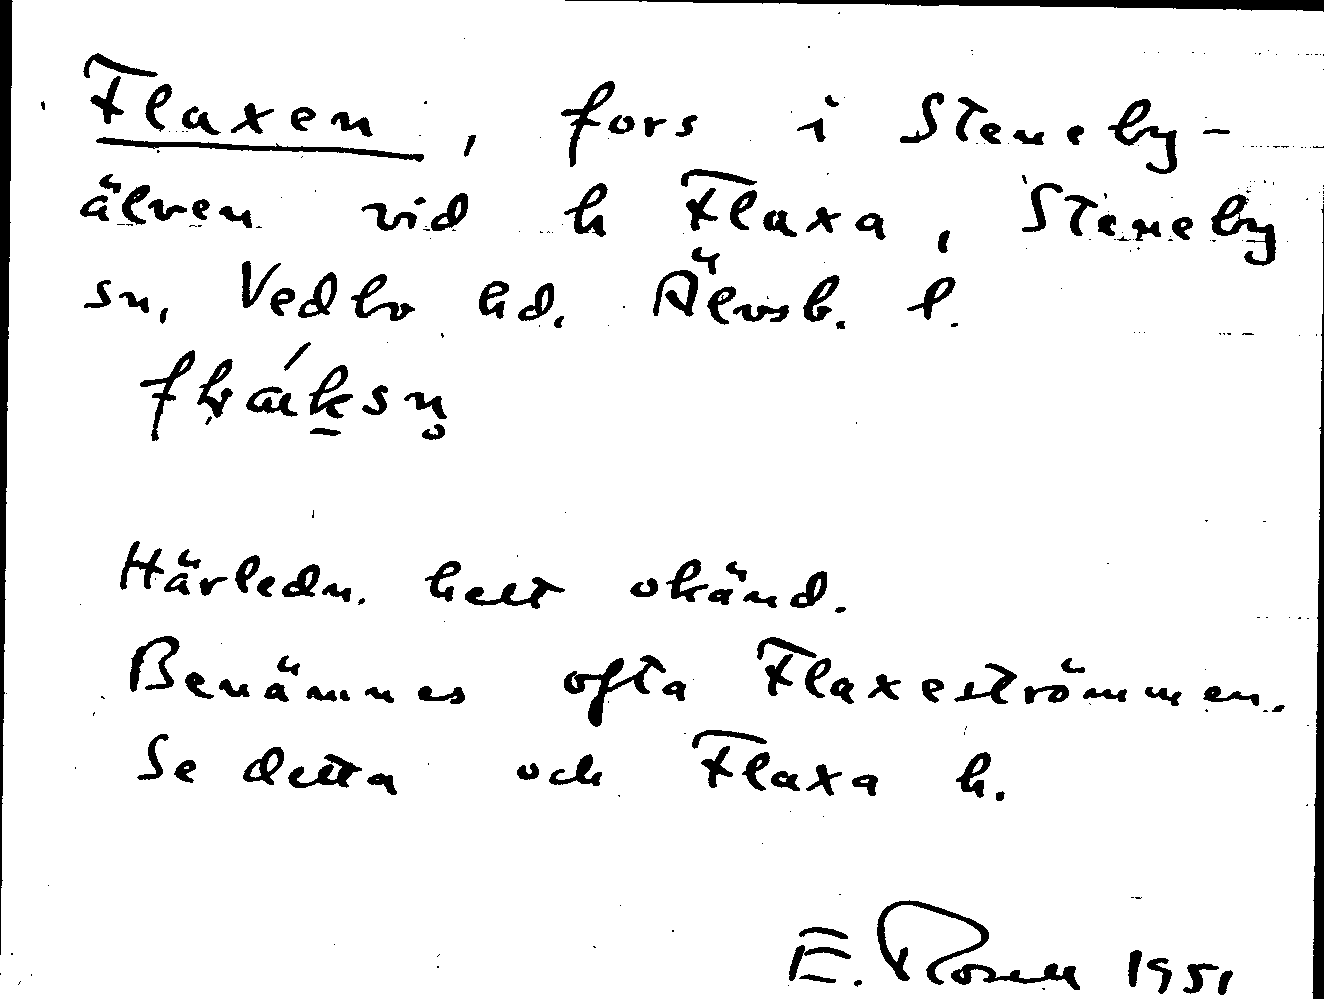 Flaxen, fors i Steneby-
älven vid h Flaxa, Steneby
sn, Vedbo hd. Älvsb. l.
Härledn. helt okänd.
Benämnes ofta Flaxeströmmen.
Se detta och Flaxa h.
E. Rosell 1951